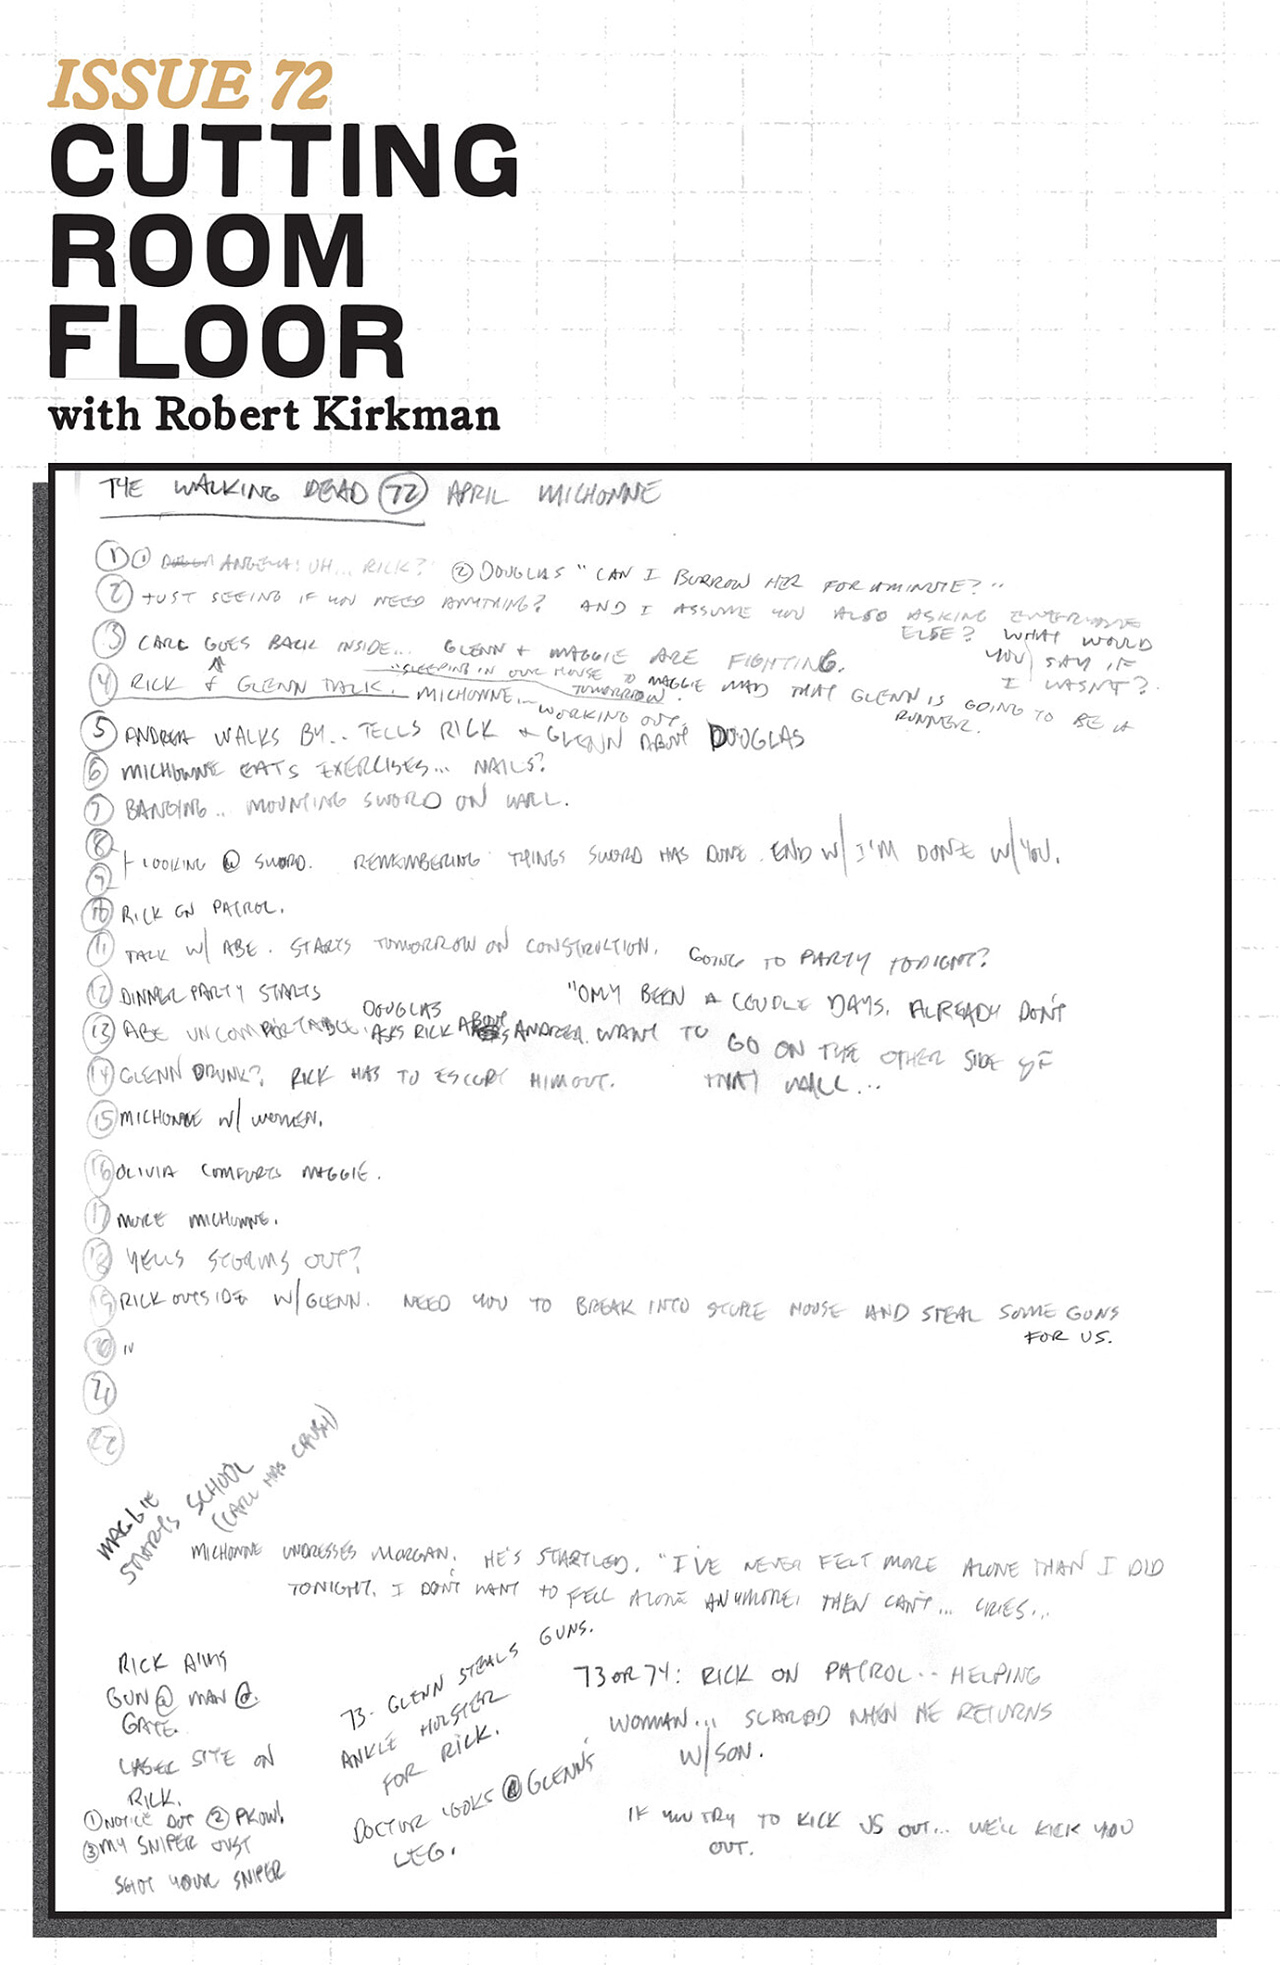 ISSUE 72
CUTTING
ROOM
FLOOR
with Robert Kirkman
THE WALKING DEAD 72 APRIL MICHONNE
1 1 ANGELA: UH... RICK? 2 DOUGLAS "CAN I BURROW HER FOR A MINUTE?"
2 JUST SEEING IF YOU NEED ANYTHING? AND I ASSUME YOU ALSO ASKING EVERYONE
ELSE? WHAT WOULD
YOU SAY IF
I WASN'T?
3 CARL GOES BACK INSIDE... GLENN + MAGGIE ARE FIGHTING.
"SLEEPING IN OUR HOUSE TOMORROW.
4 RICK & GLENN TALK. MICHONNE... WORKING OUT. MAGGIE MAD THAT GLENN IS GOING TO BE A
RUNNER.
5 ANDREA WALKS BY.. TELLS RICK + GLENN ABOUT DOUGLAS
6 MICHONNE EATS EXERCISES... NAILS?
7 BANGING.. MOUNTING SWORD ON WALL.
8
9 LOOKING @ SWORD. REMEMBERING THINGS SWORD HAS DONE. END W/ I'M DONE W/ YOU.
10 RICK ON PATROL.
11 TALK W/ ABE. STARTS TOMORROW ON CONSTRUCTION. GOING TO PARTY TONIGHT?
12 DINNER PARTY STARTS
13 ABE UNCOMFORTABLE. DOUGLAS ASKS RICK ABOUT ANDREA.
"ONLY BEEN A COUPLE DAYS. ALREADY DON'T
WANT TO GO ON THE OTHER SIDE OF
THAT WALL...
14 GLENN DRUNK? RICK HAS TO ESCORT HIM OUT.
15 MICHONNE W/ WOMEN.
16 OLIVIA COMFORTS MAGGIE.
17 MORE MICHONNE.
18 YELLS STORMS OUT?
19 RICK OUTSIDE W/ GLENN. NEED YOU TO BREAK INTO STORE HOUSE AND STEAL SOME GUNS
FOR US.
20 "
21
22
MAGGIE
STARTS SCHOOL
(CARL HAS CRUSH)
MICHONNE UNDRESSES MORGAN. HE'S STARTLED. "I'VE NEVER FELT MORE ALONE THAN I DID
TONIGHT. I DON'T WANT TO FEEL ALONE ANYMORE. THEN CAN'T... CRIES...
RICK AIMS
GUN @ MAN @
GATE.
LASER SITE ON
RICK.
1 NOTICE DOT 2 PKOW!
3 MY SNIPER JUST
SHOT YOUR SNIPER
73- GLENN STEALS GUNS.
ANKLE HOLSTER
FOR RICK.
DOCTOR LOOKS @ GLENN'S
LEG.
73 OR 74: RICK ON PATROL.. HELPING
WOMAN... SCARED WHEN HE RETURNS
W/ SON.
IF YOU TRY TO KICK US OUT... WE'LL KICK YOU
OUT.